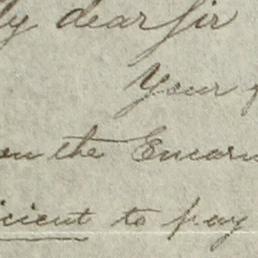 y dear Sir
Your
on the Encar
icient to pay